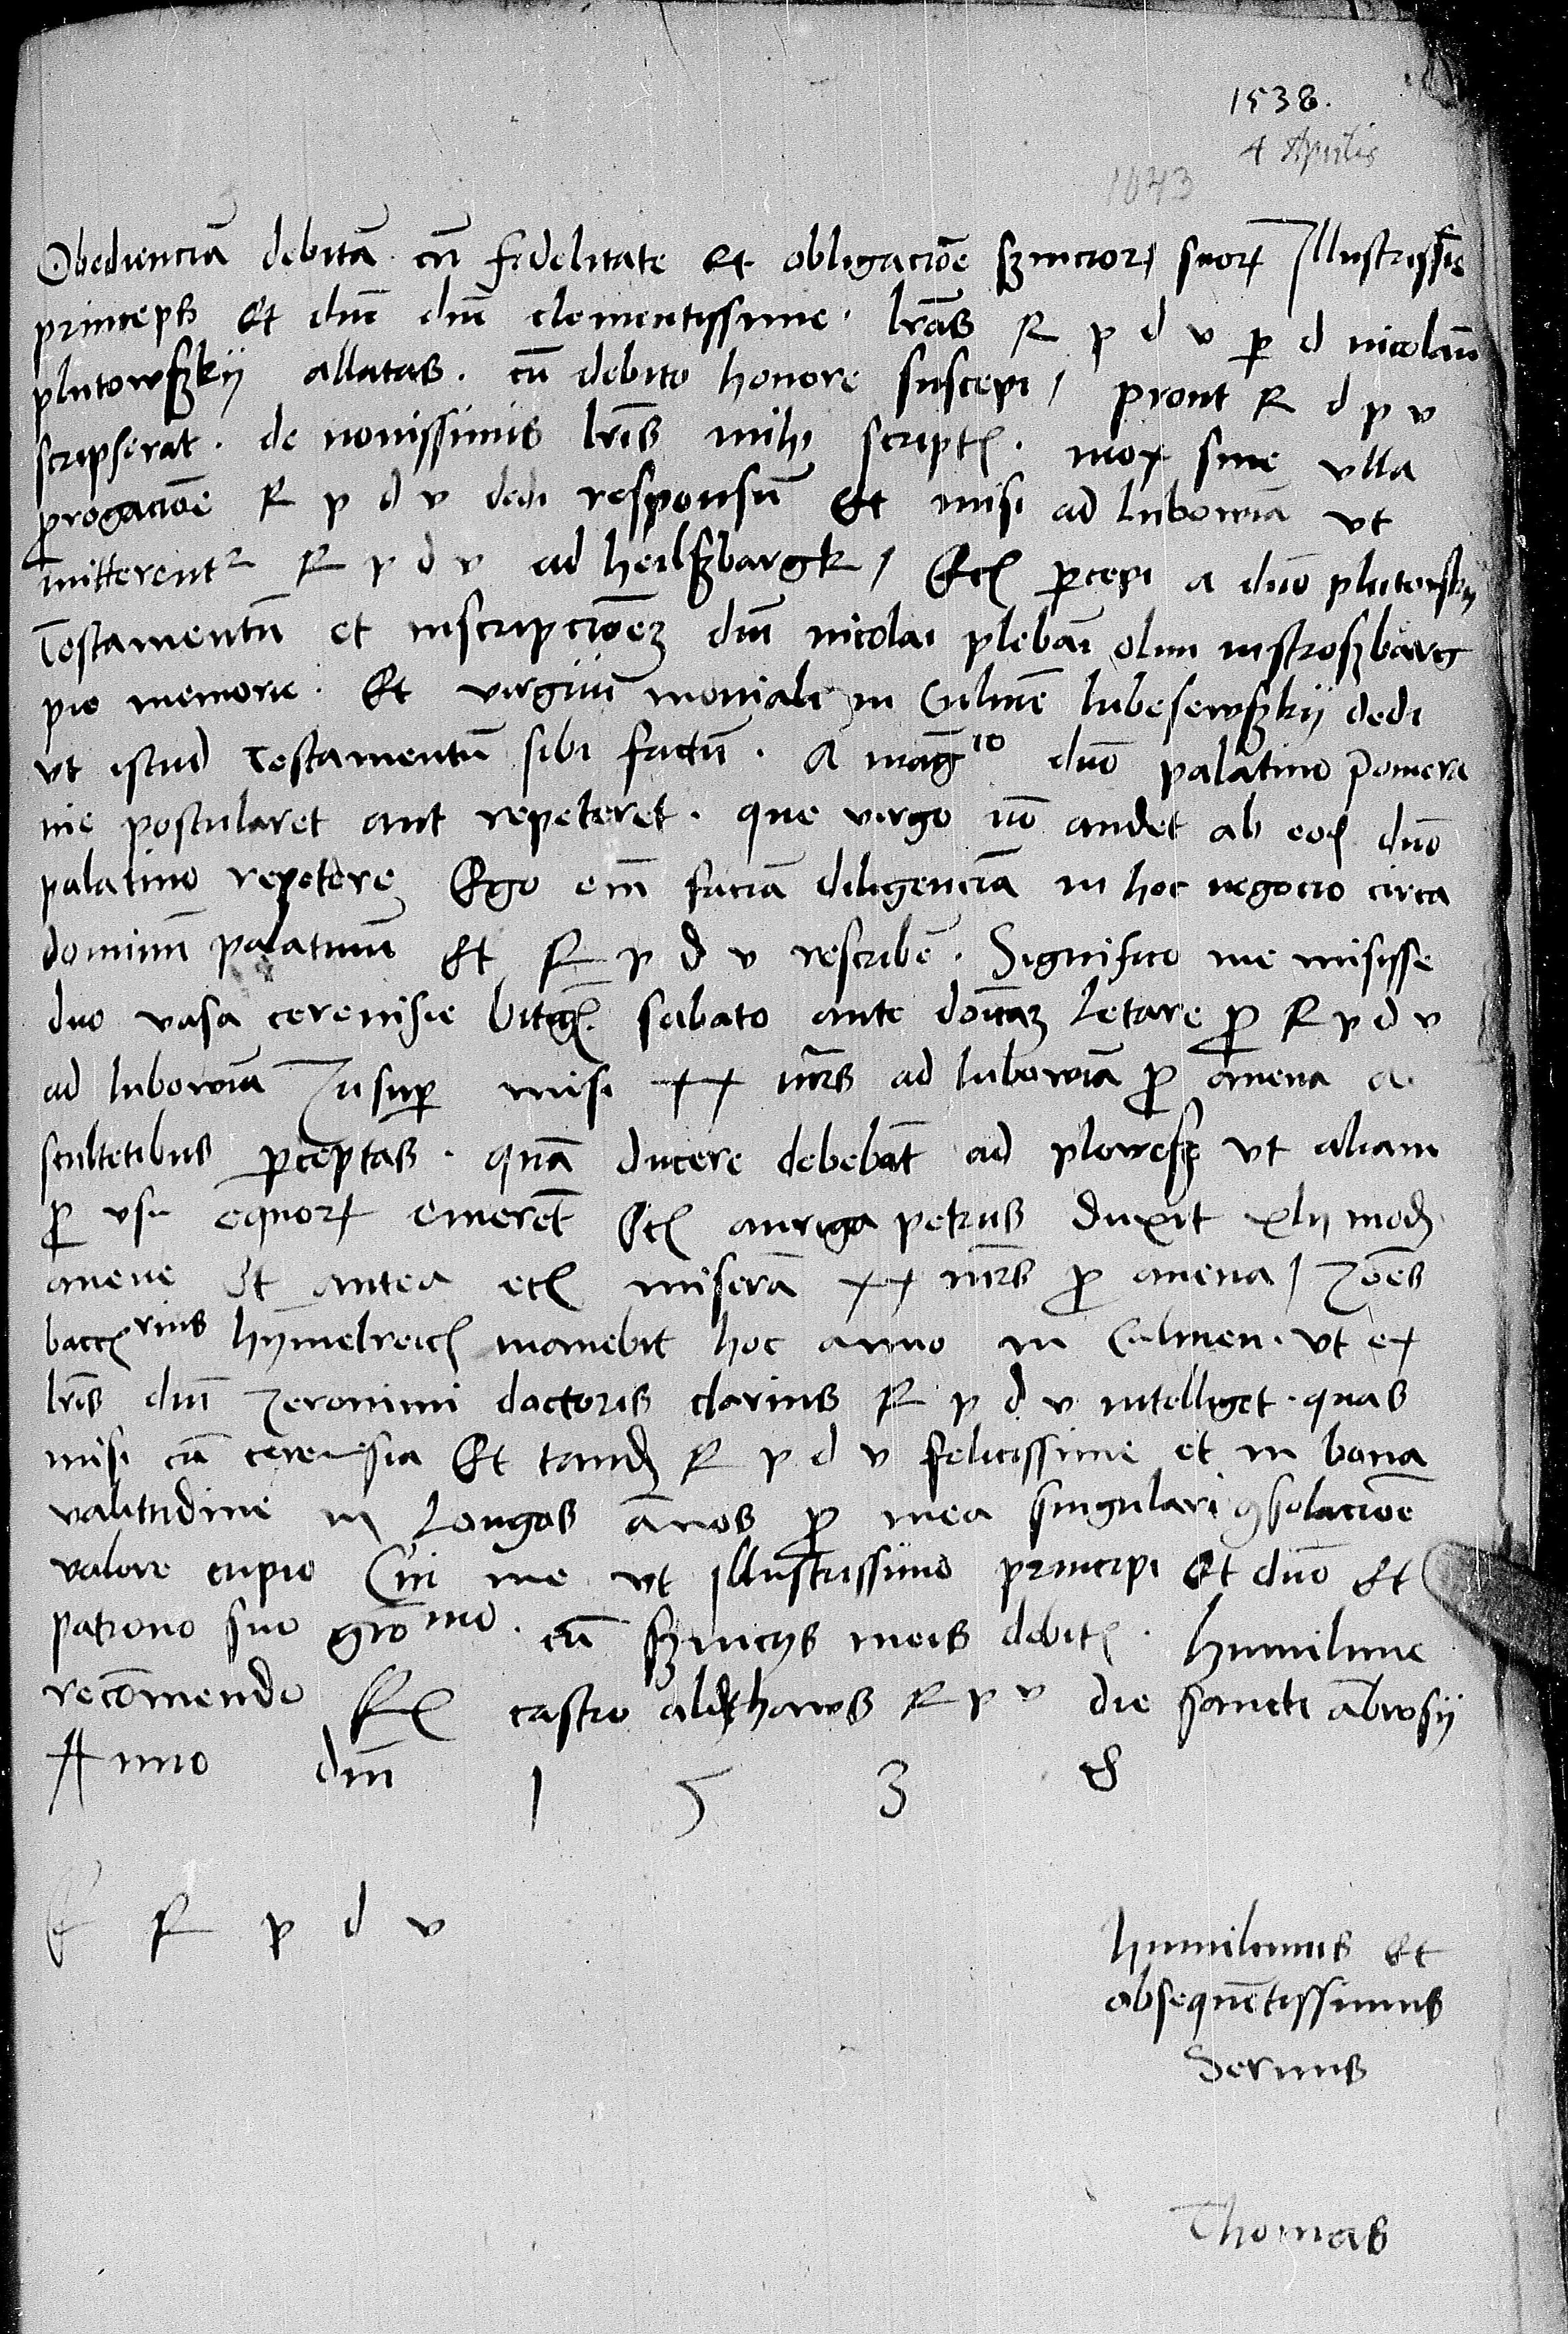 1538.
4 Aprilis
1043
Obedienciã debitã cũ fidelitate Et obligaciõe sʒuiciorꝝ suorꝝ Illustrissĩe
princeps Et dñe dñe clementissime. l̃ras R p d v ꝑ d nicolaũ
plutowsʒkÿ allatas. cũ debito honore suscepi / prout R d p v
scripserat. de nouissimis l̃ris mihi script. mox sine vlla
ꝓrogaciõe R p d v dedi responsũ Et misi ad lubowiã vt
mitterent R p d v ad heilsʒbargk / Et ꝑcepi a dño plutowskÿ
Testamentũ et inscripciõeʒ dñi nicolai plebãi olim in strosʒbarg
pie memorie. Et virgini moniali in Culmẽ lubesewsʒkÿ dedi
vt istud Testamentũ sibi factũ. A mag͂co dño palatino Pomera
nie postularet aut repeteret. que virgo nõ audet ab eod dño
palatino repetere Ego em̃ faciã diligenciã in hoc negocio circa
dominũ palatinũ Et R p d v rescribẽ. Significo me misisse
duo vasa cereuisie bitg. sabato ante domĩcaʒ Letare ꝓ R p d v
ad lubowiã Insuꝑ misi xx m̃rs ad lubowiã ꝓ auena a
scultetibus ꝑceptas. quã ducere debebãt ad plowesʒ vt aliam
ꝓ vsu equorꝝ emerẽt Et auriga petrus duxit xlij mod
auene Et antea et miserã xx m̃rs ꝓ auena / Joẽs
bacc rius hÿmelreich manebit hoc anno in Culmen. vt ex
l̃ris dñi Jeronimi doctoris clarius R p d v intelliget. quas
misi cũ cereuisia Et tand R p d v felicissime et in bona
valitudine in Longos ãnos ꝓ mea singulari ꝯsolaciõe
valere cupio Cui me vt illustrissimo principi Et dño Et
patrono suo grõ mo. cũ sʒuicijs meis debit. humilime
recõmendo Ex castro aldthaws R p v die sancti ãbrosÿ
Anno dñi 1 5 3 8
E R p d v
humilimus Et
obsequẽtissimus
Seruus
Thomas